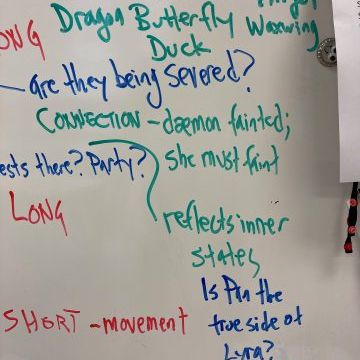 Dragon Butterfly Waxwing
Duck
ONG
are they being severed?
CONNECTION - daemon fainted;
she must faint
ests there? Party?
LONG
reflects inner
states
SHORT - movement
Is Pan the
true side of
Lyra?